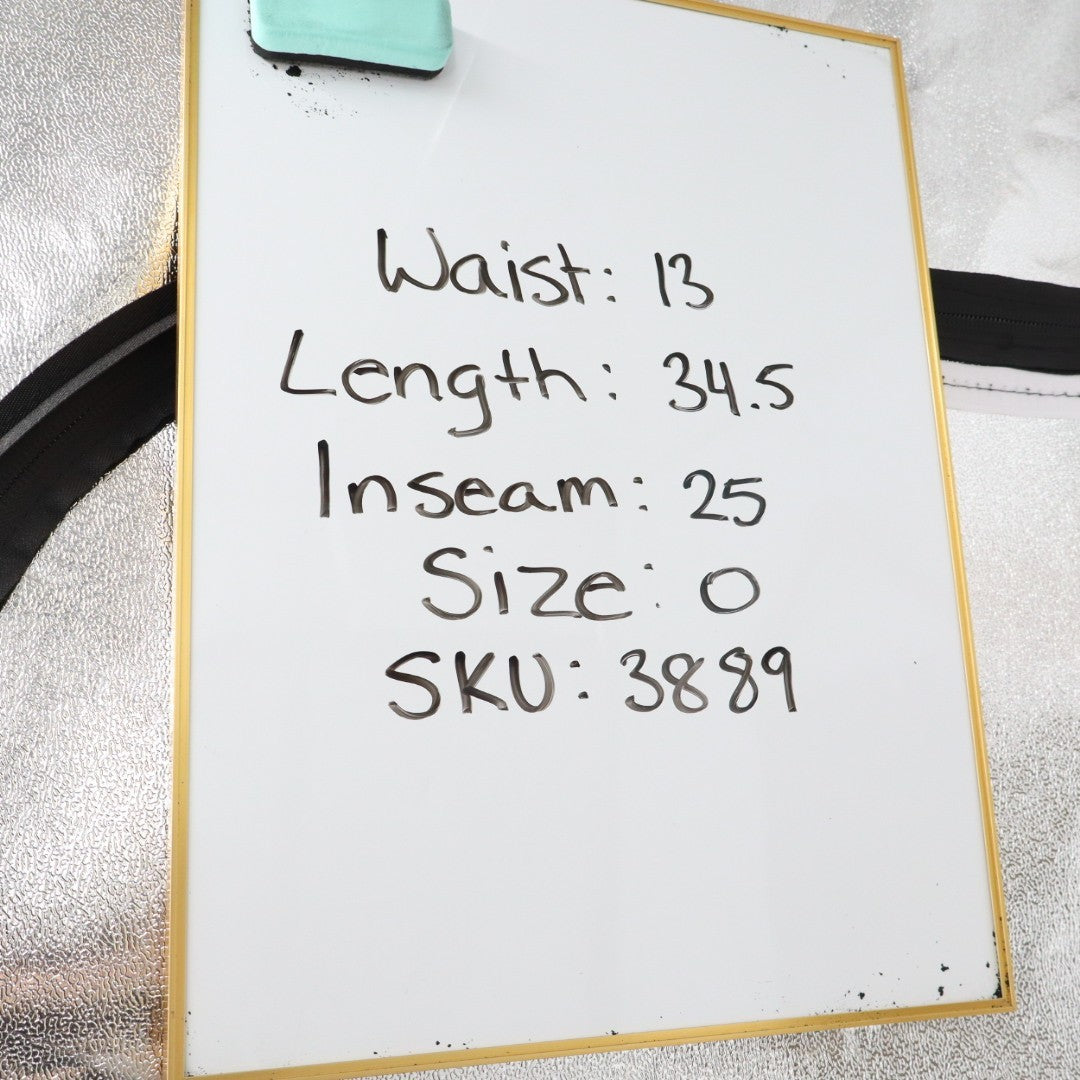 Waist: 13
Length: 34.5
Inseam: 25
Size: 0
SKU: 3889